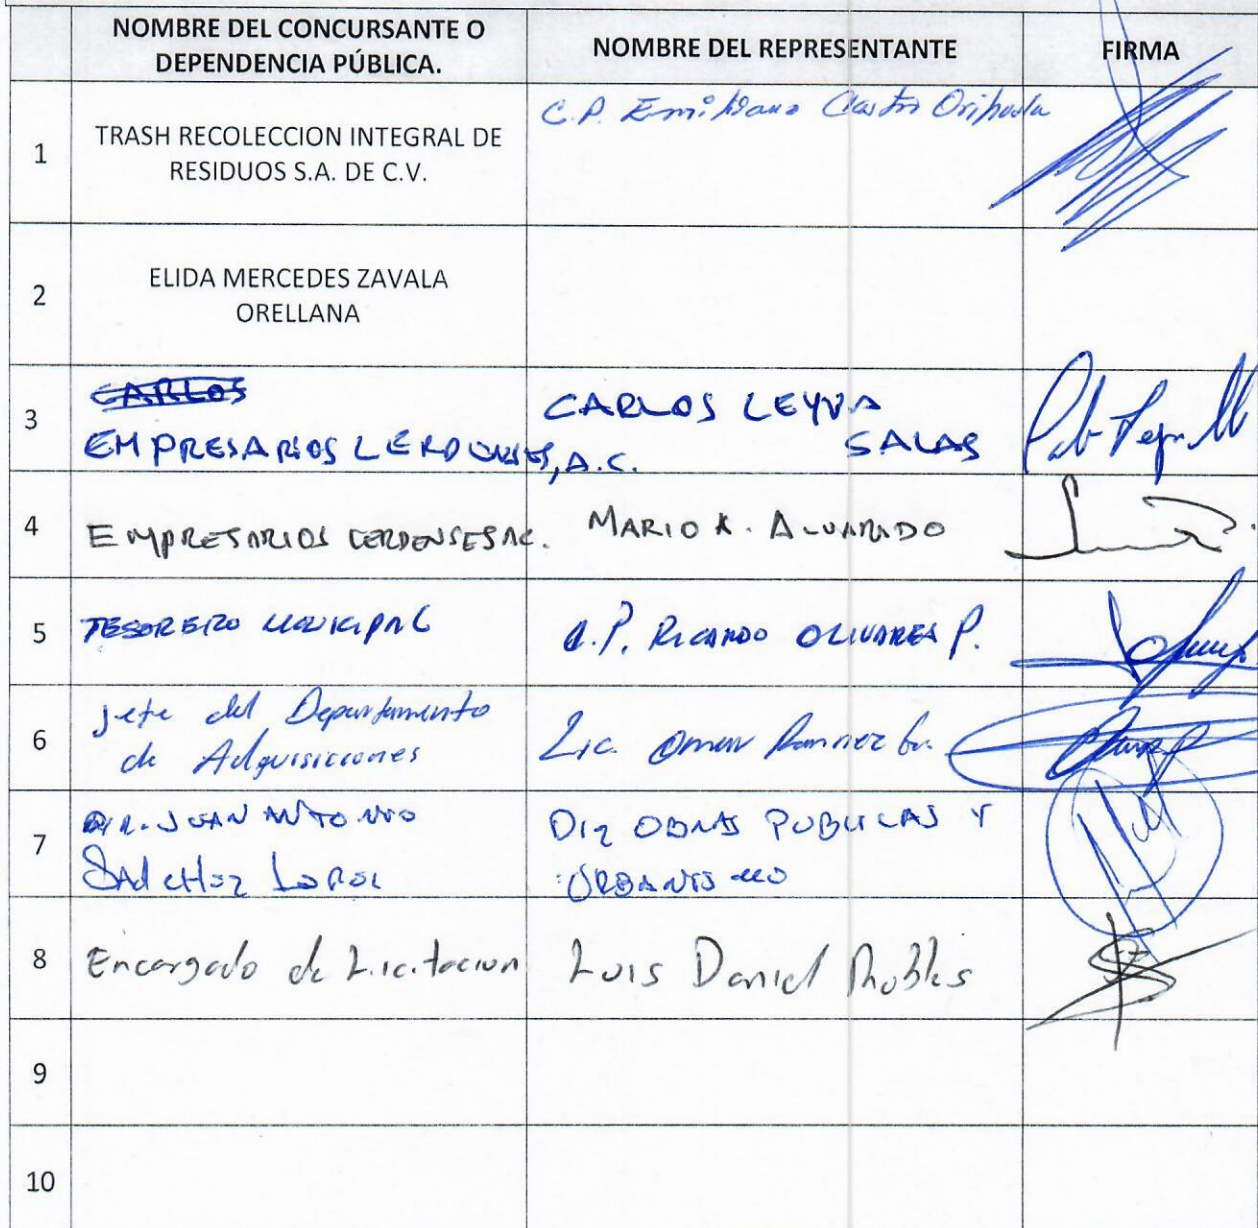 NOMBRE DEL CONCURSANTE O
DEPENDENCIA PÚBLICA.
NOMBRE DEL REPRESENTANTE
FIRMA
1
TRASH RECOLECCION INTEGRAL DE
RESIDUOS S.A. DE C.V.
C.P. Emiliano Castro Orihuela
2
ELIDA MERCEDES ZAVALA
ORELLANA
3
CARLOS
EMPRESARIOS LERDENSES, A.C.
CARLOS LEYVA
SALAS
4
EMPRESARIOS LERDENSES AC.
MARIO A. ALVARADO
5
TESORERO MUNICIPAL
C.P. RICARDO OLIVARES P.
6
Jefe del Departamento
de Adquisiciones
Lic. Omar Ramirez
7
JUAN ANTONIO
SANCHEZ LOPEZ
DIR OBRAS PUBLICAS Y
URBANISMO
8
Encargado de Licitacion
Luis Daniel Robles
9
10